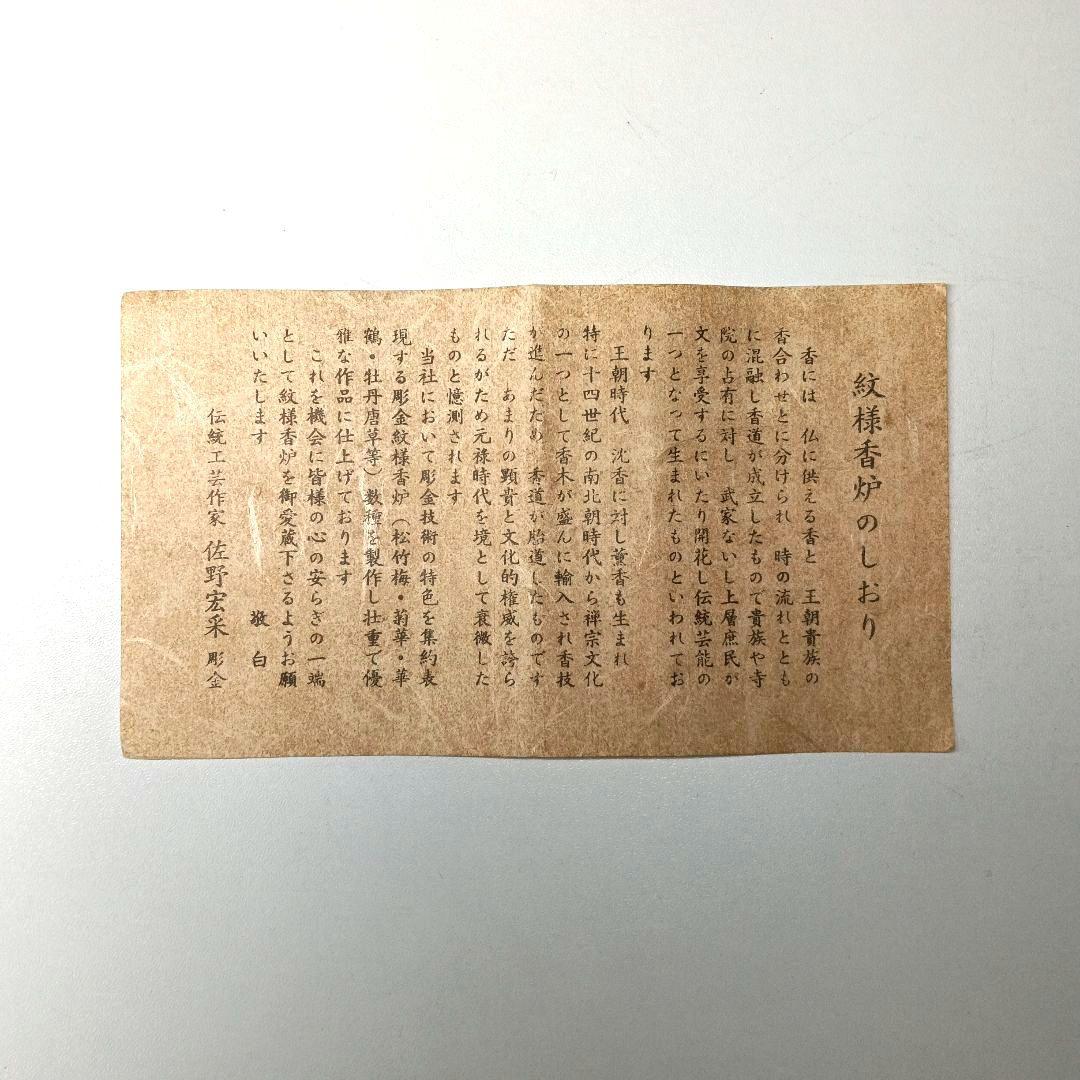 紋様香炉のしおり
香には　仏に供える香と　王朝貴族の
香合わせとに分けられ　時の流れととも
に混融し香道が成立したもので貴族や寺
院の占有に対し　武家ないし上層庶民が
文を享受するにいたり開花し伝統芸能の
一つとなって生まれたものといわれてお
ります
王朝時代　沈香に対し薫香も生まれ
特に十四世紀の南北朝時代から禅宗文化
の一つとして香木が盛んに輸入され香技
が進んだため　香道が胎道したものです
ただ　あまりの顕貴と文化的権威を誇ら
れるがため元禄時代を境として衰微した
ものと憶測されます
当社において彫金技術の特色を集約表
現する彫金紋様香炉（松竹梅・菊華・華
鶴・牡丹唐草等）数種を製作し壮重で優
雅な作品に仕上げております
これを機会に皆様の心の安らぎの一端
として紋様香炉を御愛蔵下さるようお願
いいたします　敬白
伝統工芸作家　佐野宏采　彫金